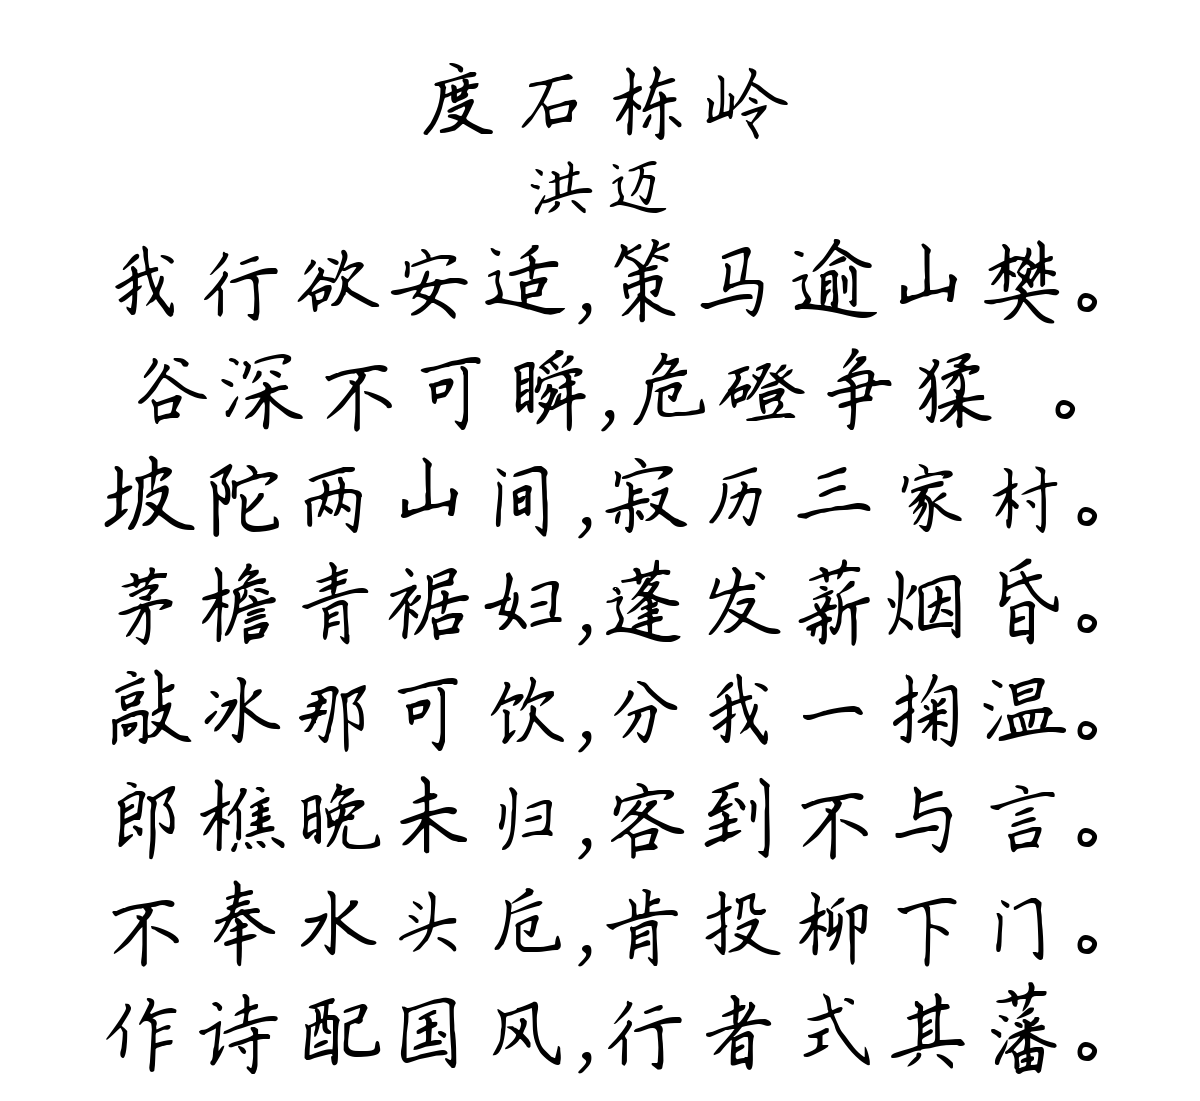 度石栋岭
洪迈
我行欲安适,策马逾山樊。
谷深不可瞬,危磴争猱 。
坡陀两山间,寂历三家村。
茅檐青裾妇,蓬发薪烟昏。
敲冰那可饮,分我一掬温。
郎樵晚未归,客到不与言。
不奉水头卮,肯投柳下门。
作诗配国风,行者式其藩。